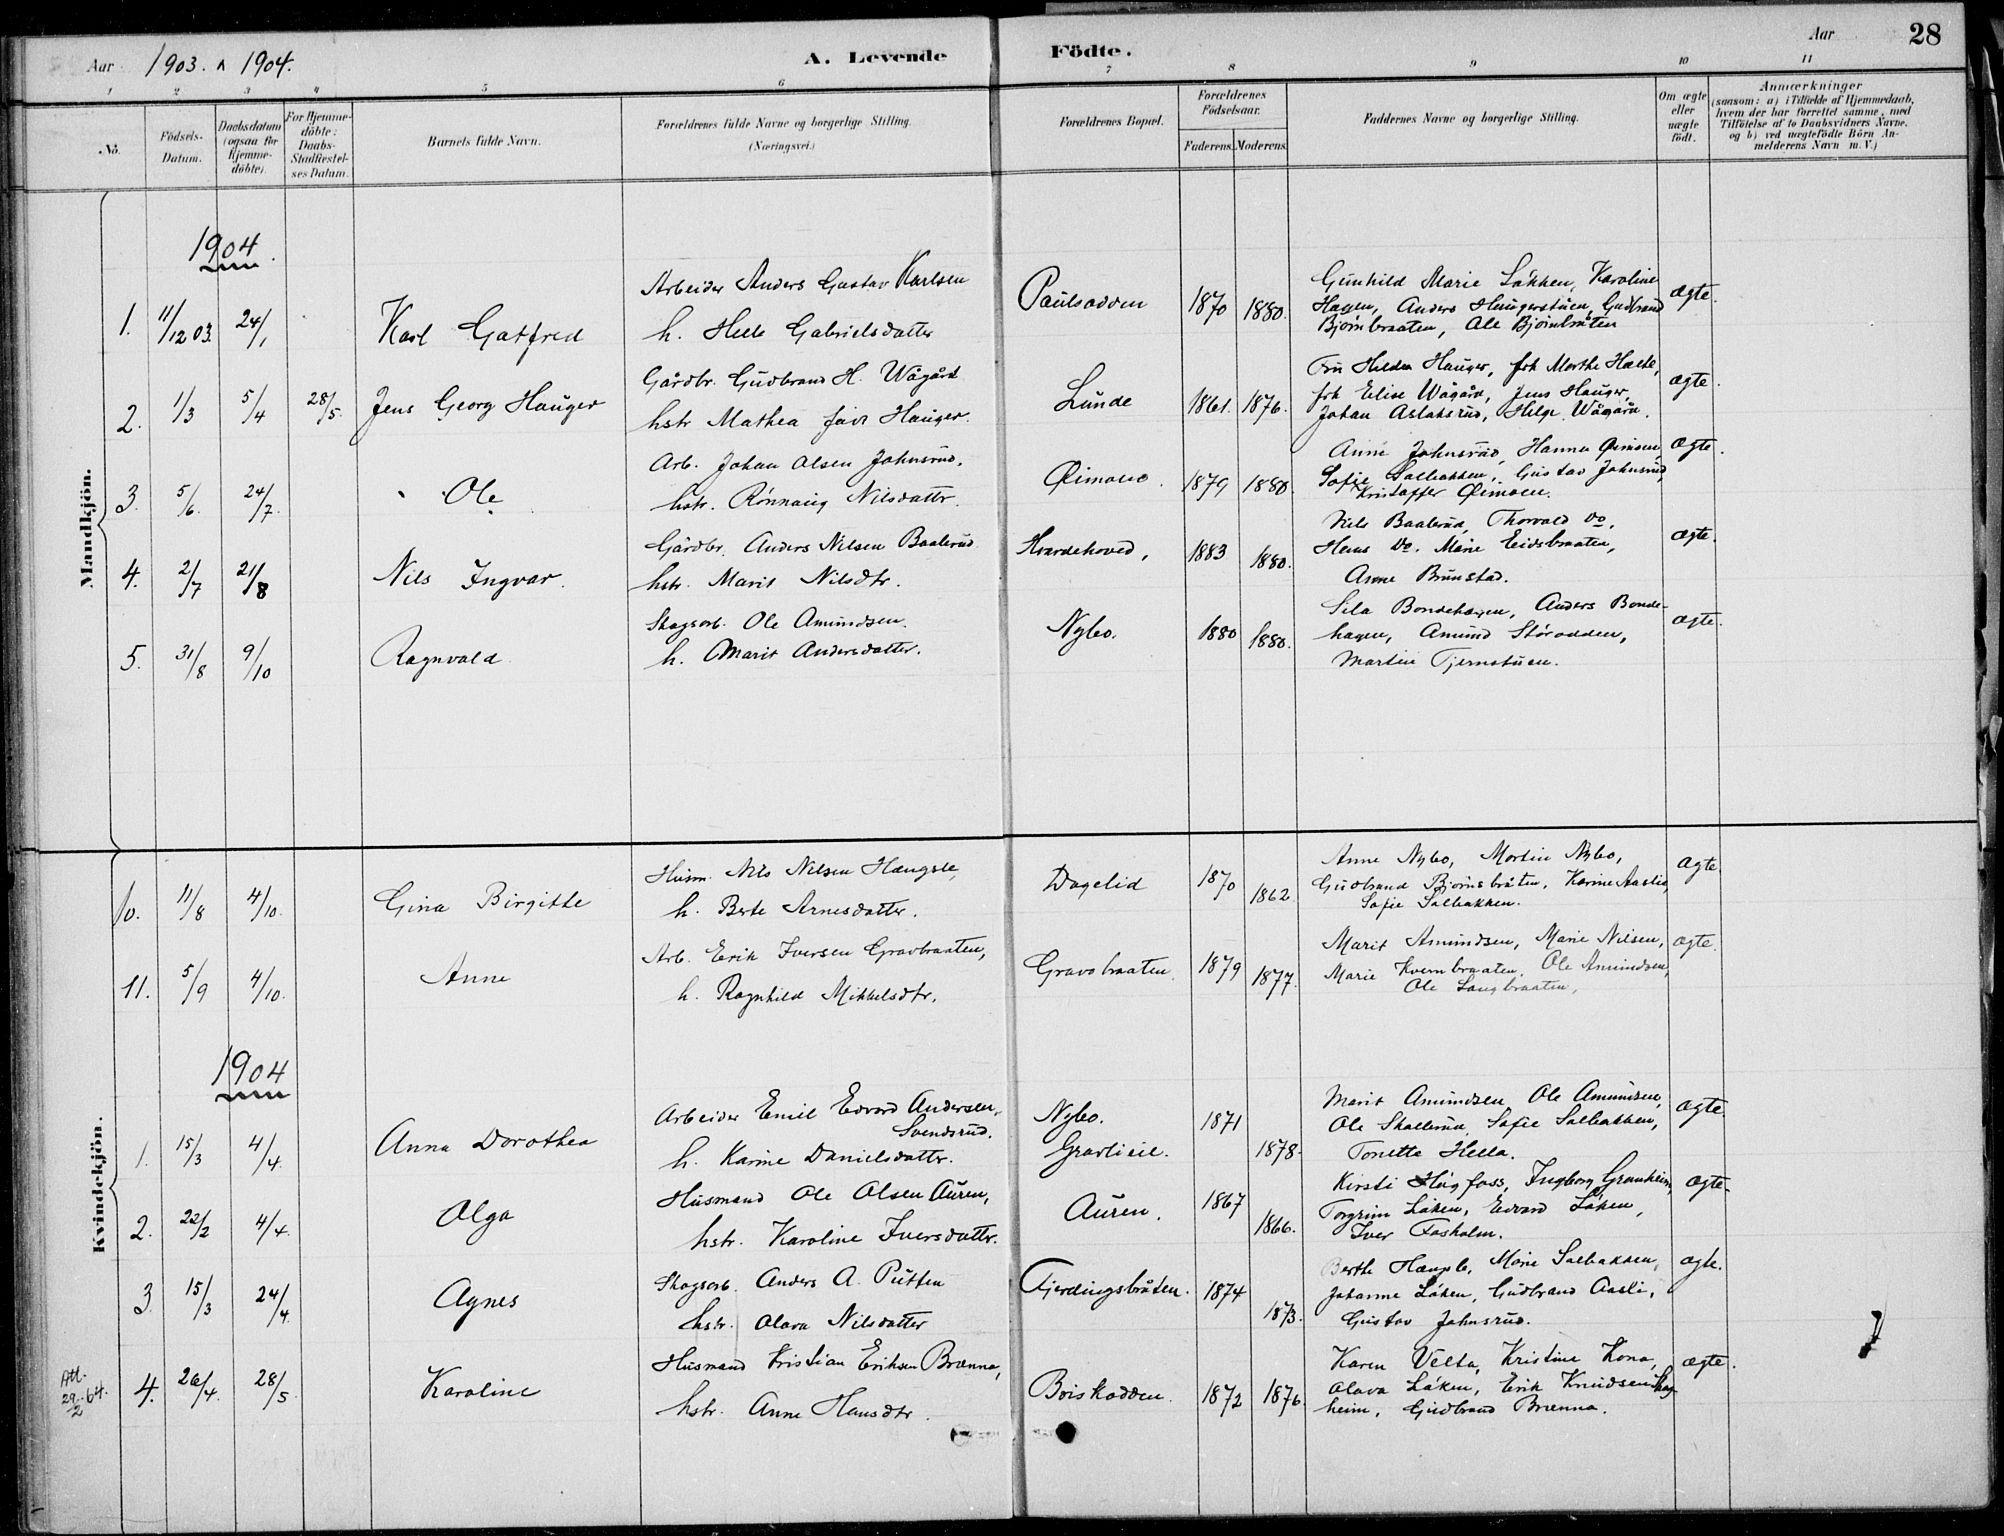 Aar 1903. ^ 1904.
A. Levende Födte.
Aar
28
1 2 3 4 5 6 7 8 9 10 11
No.
Födsels-Datum.
Daabsdatum (ogsaa for hjemmedöbte).
For Hjemmedöbte: Daabs-Stadfæstelses Datum.
Barnets fulde Navn.
Forældrenes fulde Navne og borgerlige Stilling. (Næringsvei.)
Forældrenes Bopæl.
Forældrenes Födselsaar.
Faderens. Moderens.
Faddernes Navne og borgerlige Stilling.
Om ægte eller uægte födt.
Anmærkninger
(saasom: a) i Tilfælde af Hjemmedaab, hvem der har forrettet samme, med Tilföielse af to Daabsvidners Navne, og b) ved uægtefödte Börn Anmelderens Navn m. V.)
Mandkjön.
1904.
1. 11/12 03. 24/1 Karl Gatfred
Arbeider Anders Gustav Karlsen
h. Helle Gabrielsdatter
Paulsodden 1870 1880.
Gunhild Marie Løkken, Karoline
Hagen, Anders Haugerstuen, Gudbrand
Bjørnbraaten, Ole Bjørnbråten
ægte.
2. 1/3 5/4 28/5. Jens Georg Hauger
Gårdbr. Gudbrand H. Wågård
hstr Mathea født Hauger.
Lunde 1861. 1876.
Fru Hilda Hauger, frk Marthe
frk Elise Wågård, Jens Hauger,
Johan Aslaksrud, Helge Wågård.
ægte.
3. 5/6. 24/7. Ole
Arb. Johan Olsen Johnsrud.
hstr. Rønnaug Nilsdattr.
Øimoen. 1879 1880.
Anne Johnsrud, Hanna Øimoen,
Sofie Salbakken, Gustav Johnsrud,
Kristoffer Øimoen.
ægte.
4. 2/7 21/8 Nils Ingvar.
Gårdbr. Anders Nilsen Baalerud
hstr. Marit Nilsdtr.
Hvardehoved, 1883 1880.
Niels Baalerud, Thorvald do,
Hans Do. Marie Eidsbraaten,
Anne Brunstad.
ægte.
5. 31/8 9/10 Ragnvald
Skogsarb. Ole Amundsen.
h. Marit Andersdatter.
Nybo. 1880 1880.
Sila Bondehagen, Anders Bonde-
hagen, Amund Störodden,
Martin Tjernstuen.
ægte.
Kvindekjön.
10. 11/8 4/10. Gina Birgitte
Husm. Nils Nilsen Hængsle,
h. Berte Arnesdatter.
Dagelid 1870 1862.
Anne Nybo, Martin Nybo,
Gudbrand Bjørnsbråten, Karine Aaslie,
Sofie Salbakken.
ægte
11. 5/9 4/10. Anne
Arb. Erik Iversen Gravbraaten,
h. Ragnhild Mikkelsdtr.
Gravsbraaten. 1879 1877.
Marit Amundsen, Marie Nilsen,
Marie Kvernbraaten. Ole Amundsen,
Ole Langbraaten,
ægte.
1904
1. 15/3 4/4. Anna Dorothea
Arbeider Emil Edvard Andersen,
Svendsrud.
h. Karine Danielsdatter.
Nybo.
1871 1878.
Marit Amundsen, Ole Amundsen,
Ole Skallerud, Sofie Salbakken,
Tonette Hella.
ægte.
2. 22/2 4/4. Olga
Husmand Ole Olsen Auren,
hstr. Karoline Iversdatter.
Auren. 1867 1866.
Kirsti Høgfoss, Ingborg Granheim,
Torgrim Løken, Edvard Løken,
Iver Fosholm.
ægte.
3. 15/3 24/4. Agnes
Skogsarb. Anders A. Putten
hstr. Olava Nilsdatter
Fjerdingsbråten. 1874 1873.
Berthe Hængsle, Marie Salbakken,
Johanne Løken, Gudbrand Aasli,
Gustav Johnsrud.
ægte.
Att. 29/2-64.
4. 26/4. 28/5. Karoline
Husmand Kristian Eriksen Brænna,
hstr. Anne Hansdtr.
Boiskodden. 1872 1876.
Karen Velta, Kristine Kona,
Olava Løken, Erik Knudsen
heim, Gudbrand Brænna.
ægte.